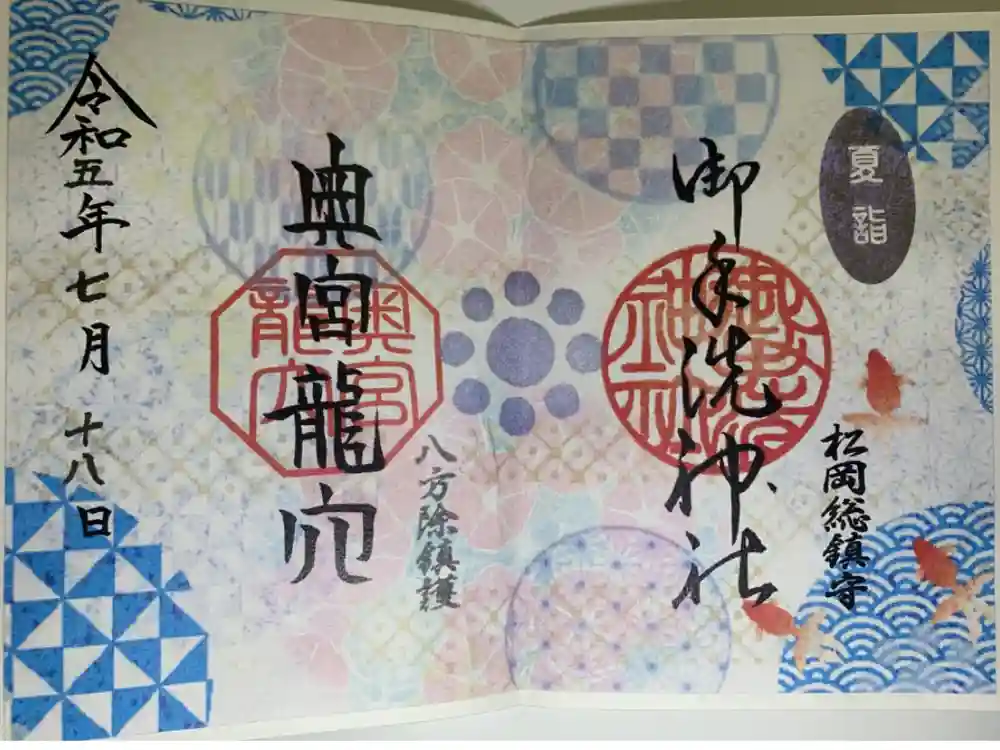 夏詣
松岡総鎮守
御手洗神社
御手洗神社
八方除鎮護
奥宮龍穴
奥宮龍穴
令和五年七月十八日